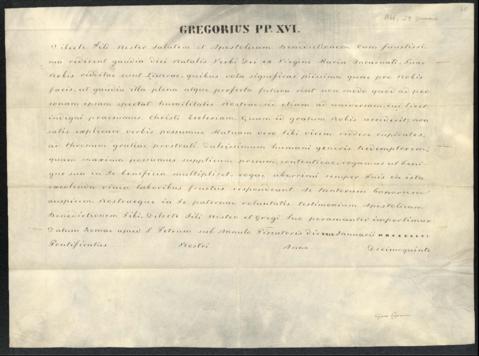 GREGORIUS PP. XVI.
Dilecte Fili Noster salutem et Apostolicam Benedictionem Cum faustissi-
ma redirent gaudia diei Natalis Verbi Dei ex Virgine Maria Incarnati, Tuae
Nobis redditae sunt Litterae, quibus vota significas piissima quae pro Nobis
facis, ut gaudia illa plena atque perfecta futura sint non modo quod ad per-
sonam ipsam spectat humilitatis Nostrae, sed etiam ad universam, cui licet
indigni praesumus, Christi Ecclesiam. Quam id gratum Nobis acciderit, non
satis explicare verbis possumus Mutuam vero Tibi vicem reddere cupientes,
ad thronum gratiae prostrati Dulcissimum humani generis Redemptorem,
quam maxima possumus supplicum precum contentione, rogamus ut beni-
gne sua in Te beneficia multiplicet,
excolenda vinea laboribus fructus respondeant. Et tantorum bonorum
auspicem Nostraeque in Te paternae voluntatis testimonium Apostolicam
Benedictionem Tibi, Dilecte Fili Noster et Gregi Tuo peramanter impertimur
Datum Romae apud S. Petrum sub Annulo Piscatoris die Januarii
Pontificatus Nostri Anno Decimoquinto